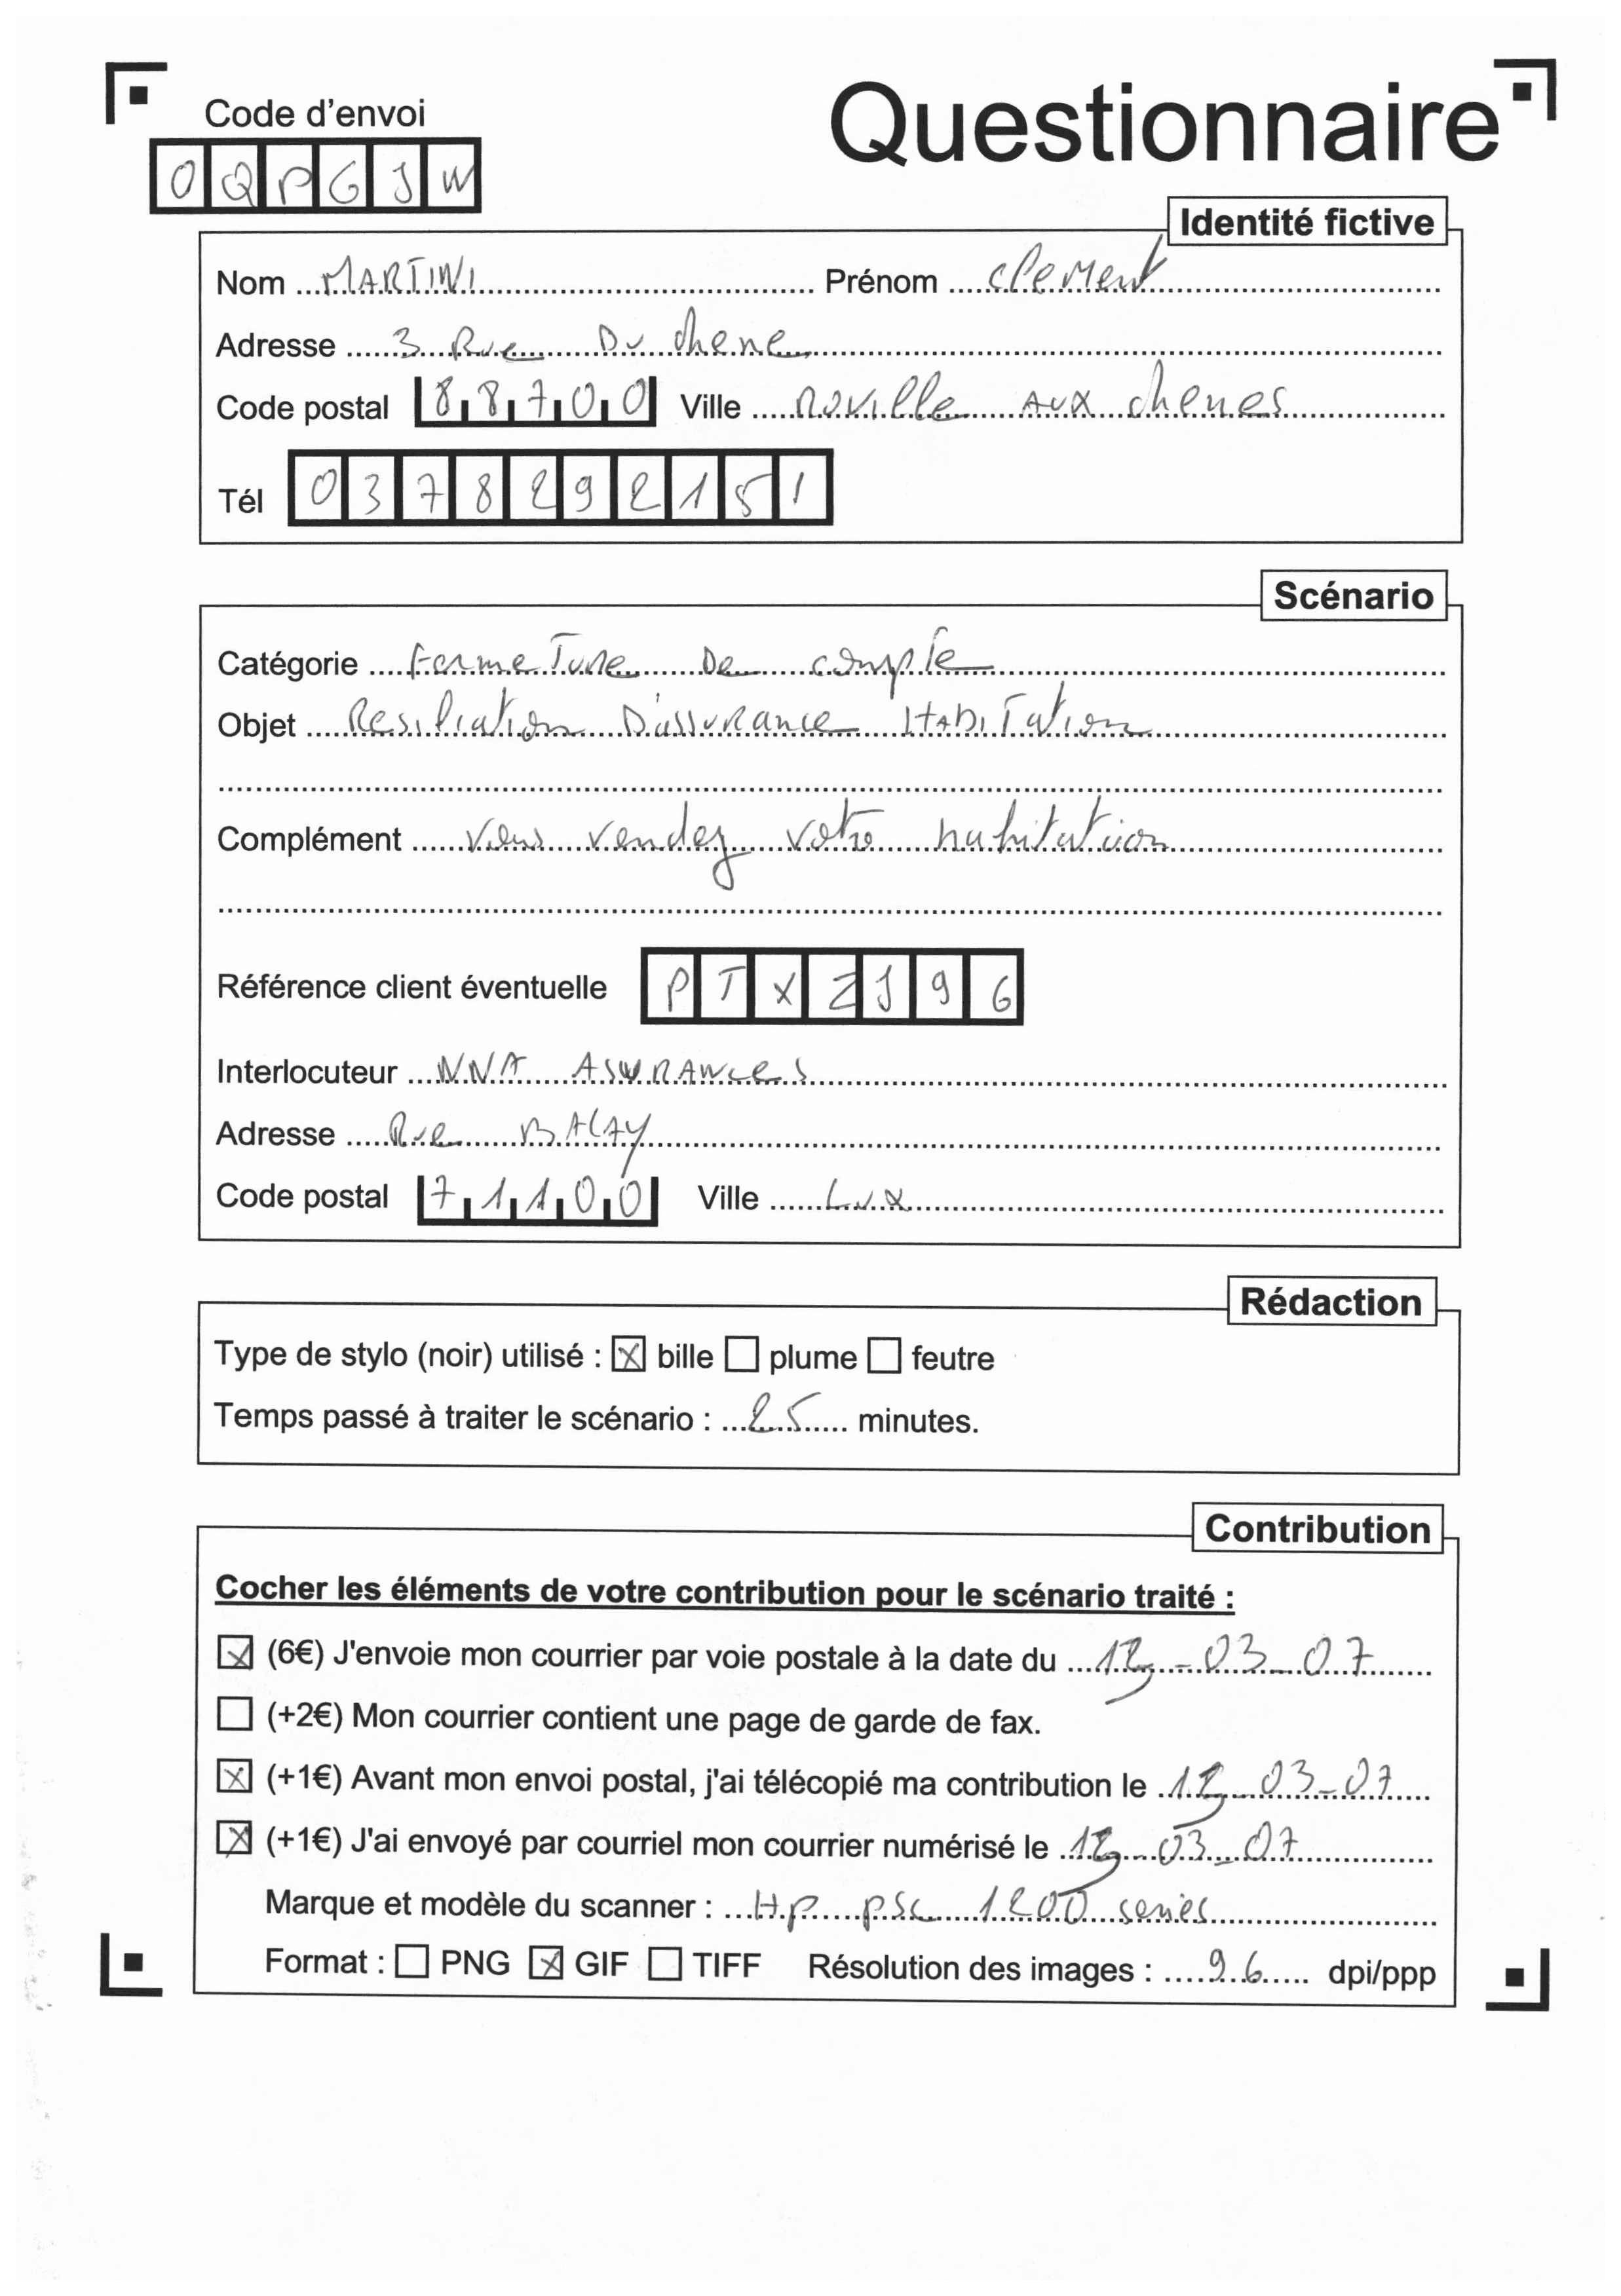 Questionnaire
Code d'envoi
OQPGJW
Identité fictive
Nom MARTINI Prénom clement
Adresse 3 Rue Du chene
Code postal 88700 Ville Roville Aux chenes
Tél 0378292151
Scénario
Catégorie FermeTure De compte
Objet Resiliation D'assurance HABITation
Complément vous vendez votre habitation
Référence client éventuelle PTXZJ96
Interlocuteur NNA ASSURANces
Adresse Rue BALAY
Code postal 71100 Ville Lux
Rédaction
Type de stylo (noir) utilisé : bille plume feutre
Temps passé à traiter le scénario : 25 minutes.
Contribution
Cocher les éléments de votre contribution pour le scénario traité :
(6€) J'envoie mon courrier par voie postale à la date du 13-03-07
(+2€) Mon courrier contient une page de garde de fax.
(+1€) Avant mon envoi postal, j'ai télécopié ma contribution le 13-03-07
(+1€) J'ai envoyé par courriel mon courrier numérisé le 13-03-07
Marque et modèle du scanner : Hp psc 1200 series
Format : PNG GIF TIFF Résolution des images : 96 dpi/ppp